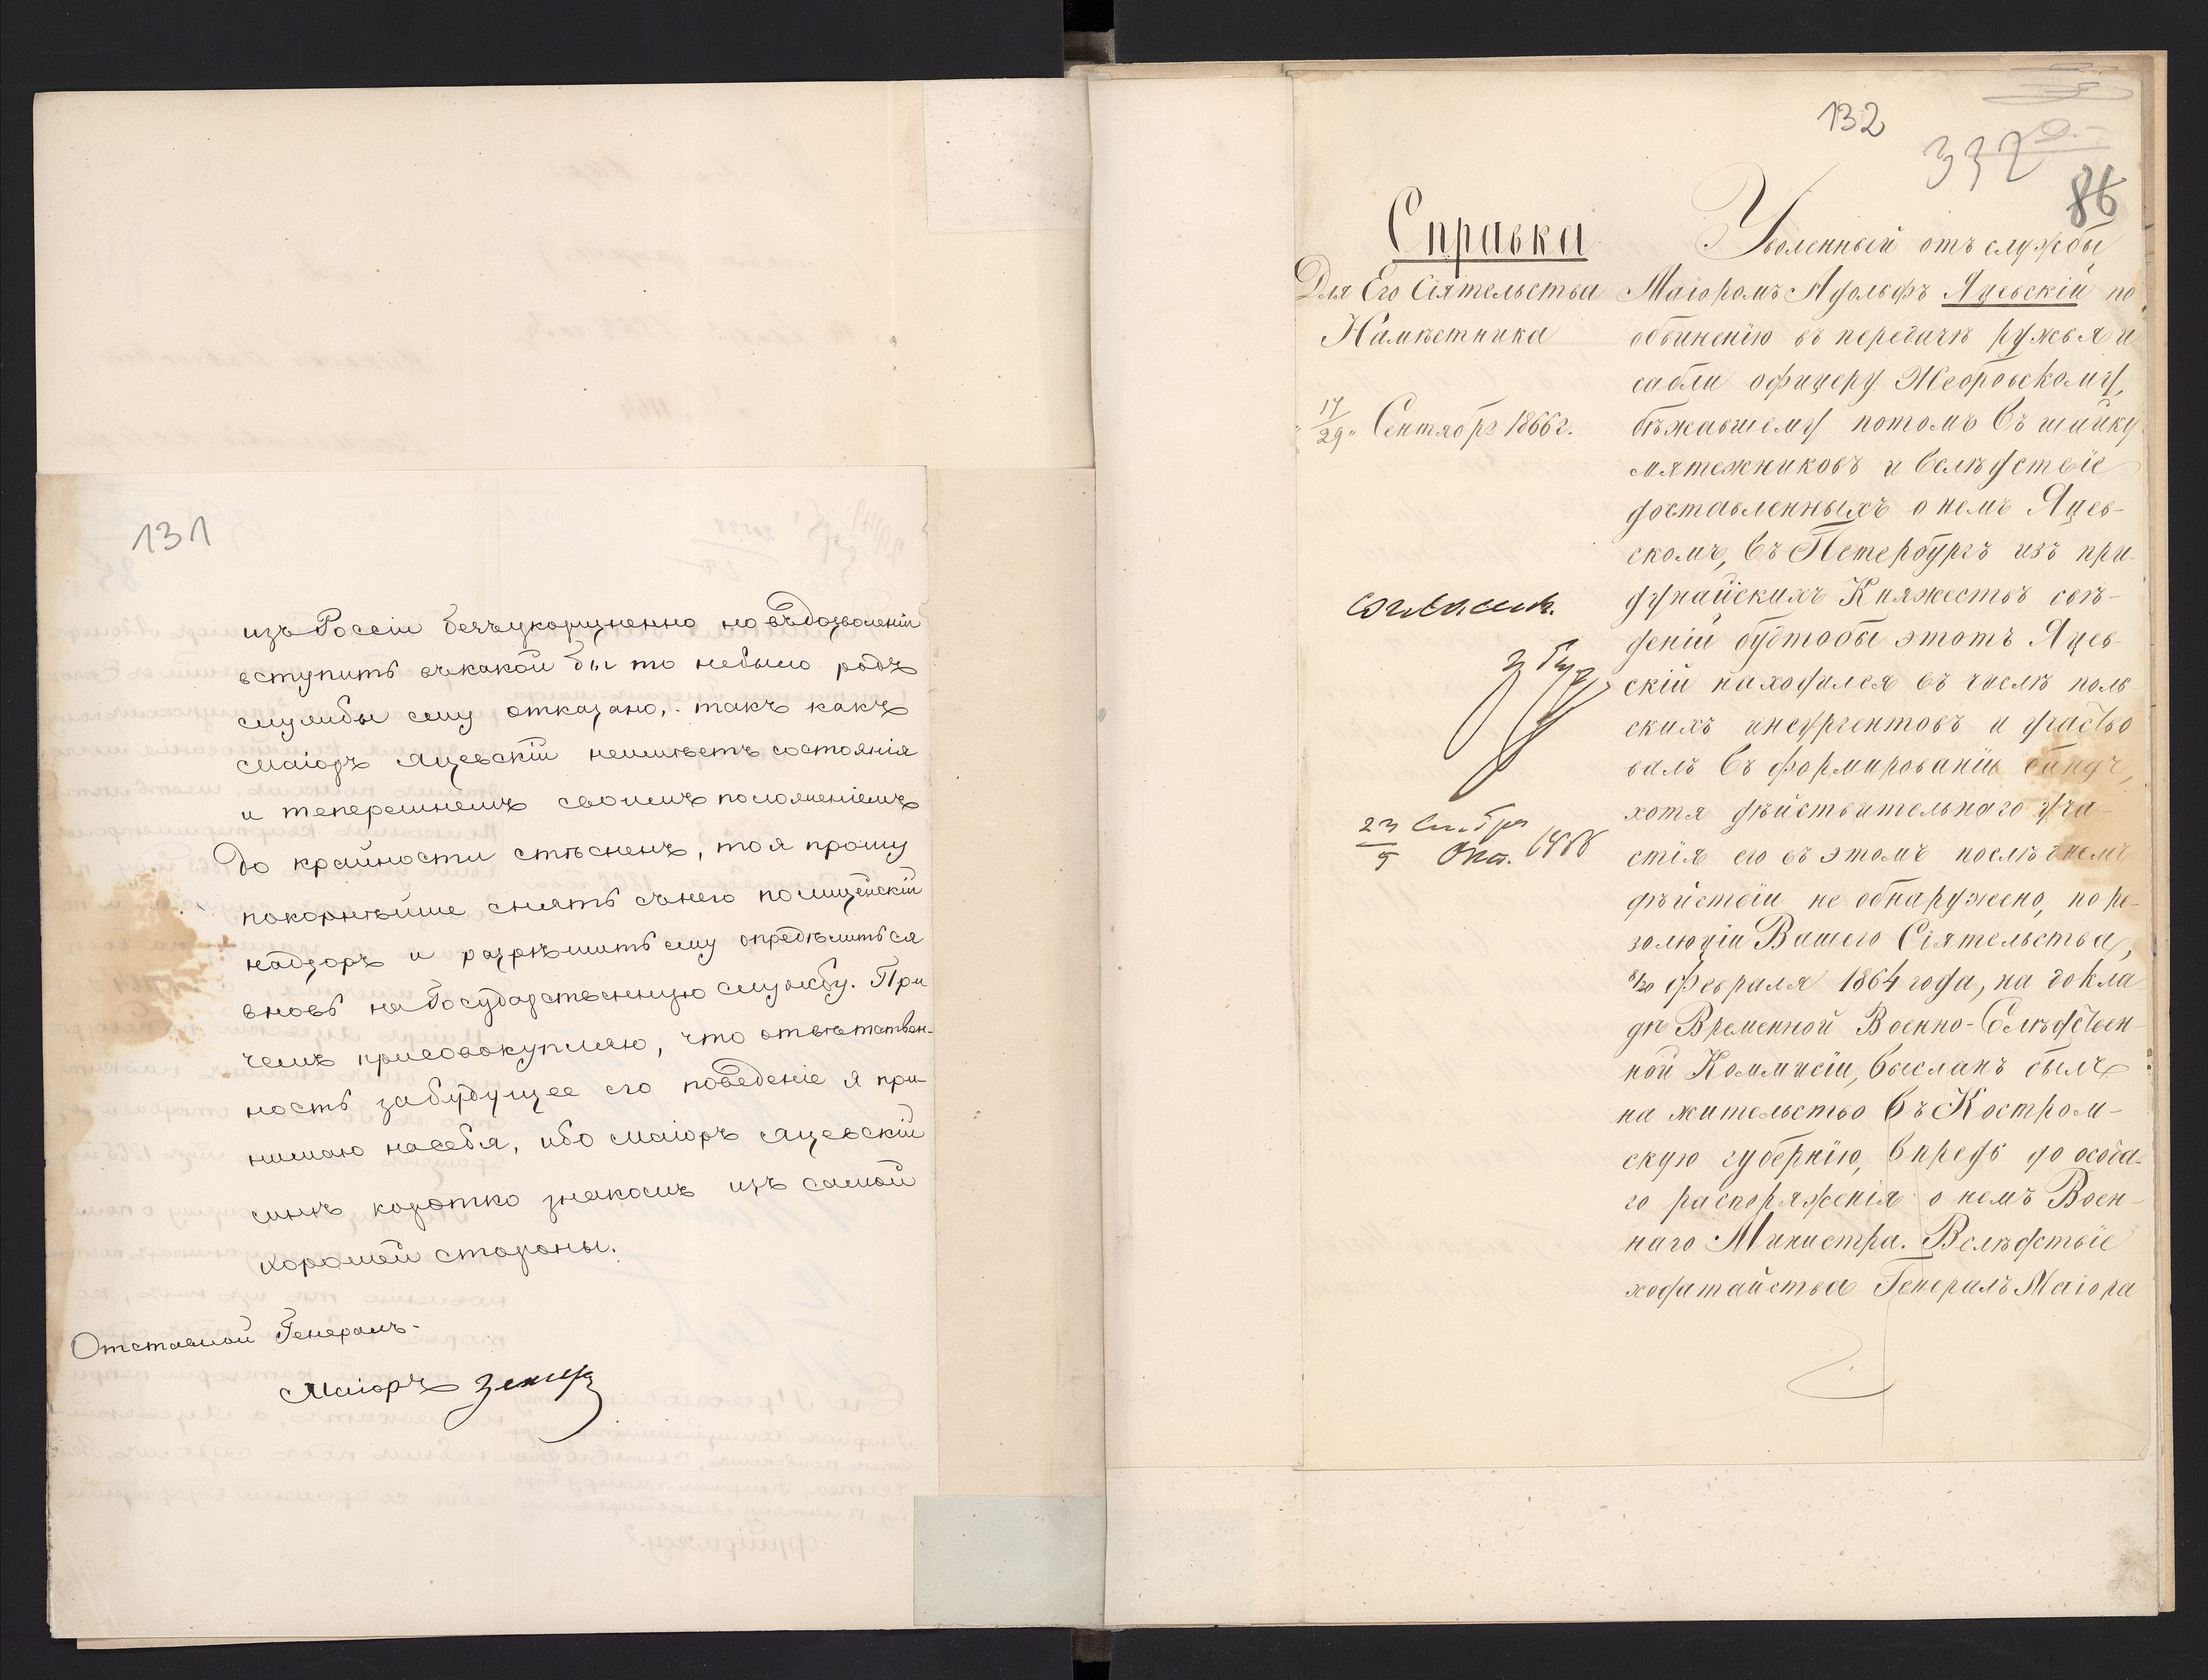 131
изъ Россіи безъукоризненно но въ дозволеніи
вступить въ какой бы то небыло родъ
службы ему отказано, такъ какъ
Маіоръ Яцевскій неимѣетъ состоянія
и теперешнемъ своимъ положеніемъ
до крайности стѣсненъ, то я прошу
покорнѣйше снять сънего полицейскій
надзоръ и разрѣшить ему опредѣлиться
вновь на Государственную службу. При
чемъ присовокупляю, что отвѣтствен-
ность за будущее его поведеніе я при-
нимаю на себя, ибо Маіоръ Яцевскій
мнѣ коротко знакомъ изъ самой
хорошей стороны.
Отставной Генералъ-
Маіоръ
132
332
86
Справка
Для Его Сіятельства
Намѣстника
"17/29" Сентября 1866 г.
Согласенъ.
23
5 Окт.
Уволенный отъ службы
Маіоромъ Адольфъ Яцевскій по
обвиненію въ передачѣ ружья и
сабли офицеру Жебровскому,
бѣжавшему потомъ въ шайку
мятежниковъ и вслѣдствіе
доставленныхъ о немъ Яцев-
скомъ, въ Петербургъ изъ при-
дунайскихъ Княжествъ свѣ-
деній будтобы этотъ Яцев-
скій находился въ числѣ поль-
скихъ инсургентовъ и участво
валъ въ формированіи бандъ,
хотя дѣйствительнаго уча-
стія его въ этомъ послѣднемъ
дѣйствіи не обнаружено, по ре-
золюціи Вашего Сіятельства,
8/20 Февраля 1864 года, на докла
дѣ Временной Военно-Слѣдствен-
ной Коммисіи, высланъ былъ
на жительство въ Костром-
скую губернію, впредь до особа-
го распоряженія о немъ Воен-
наго Министра. Вслѣдствіе
ходатайства Генералъ Маіора